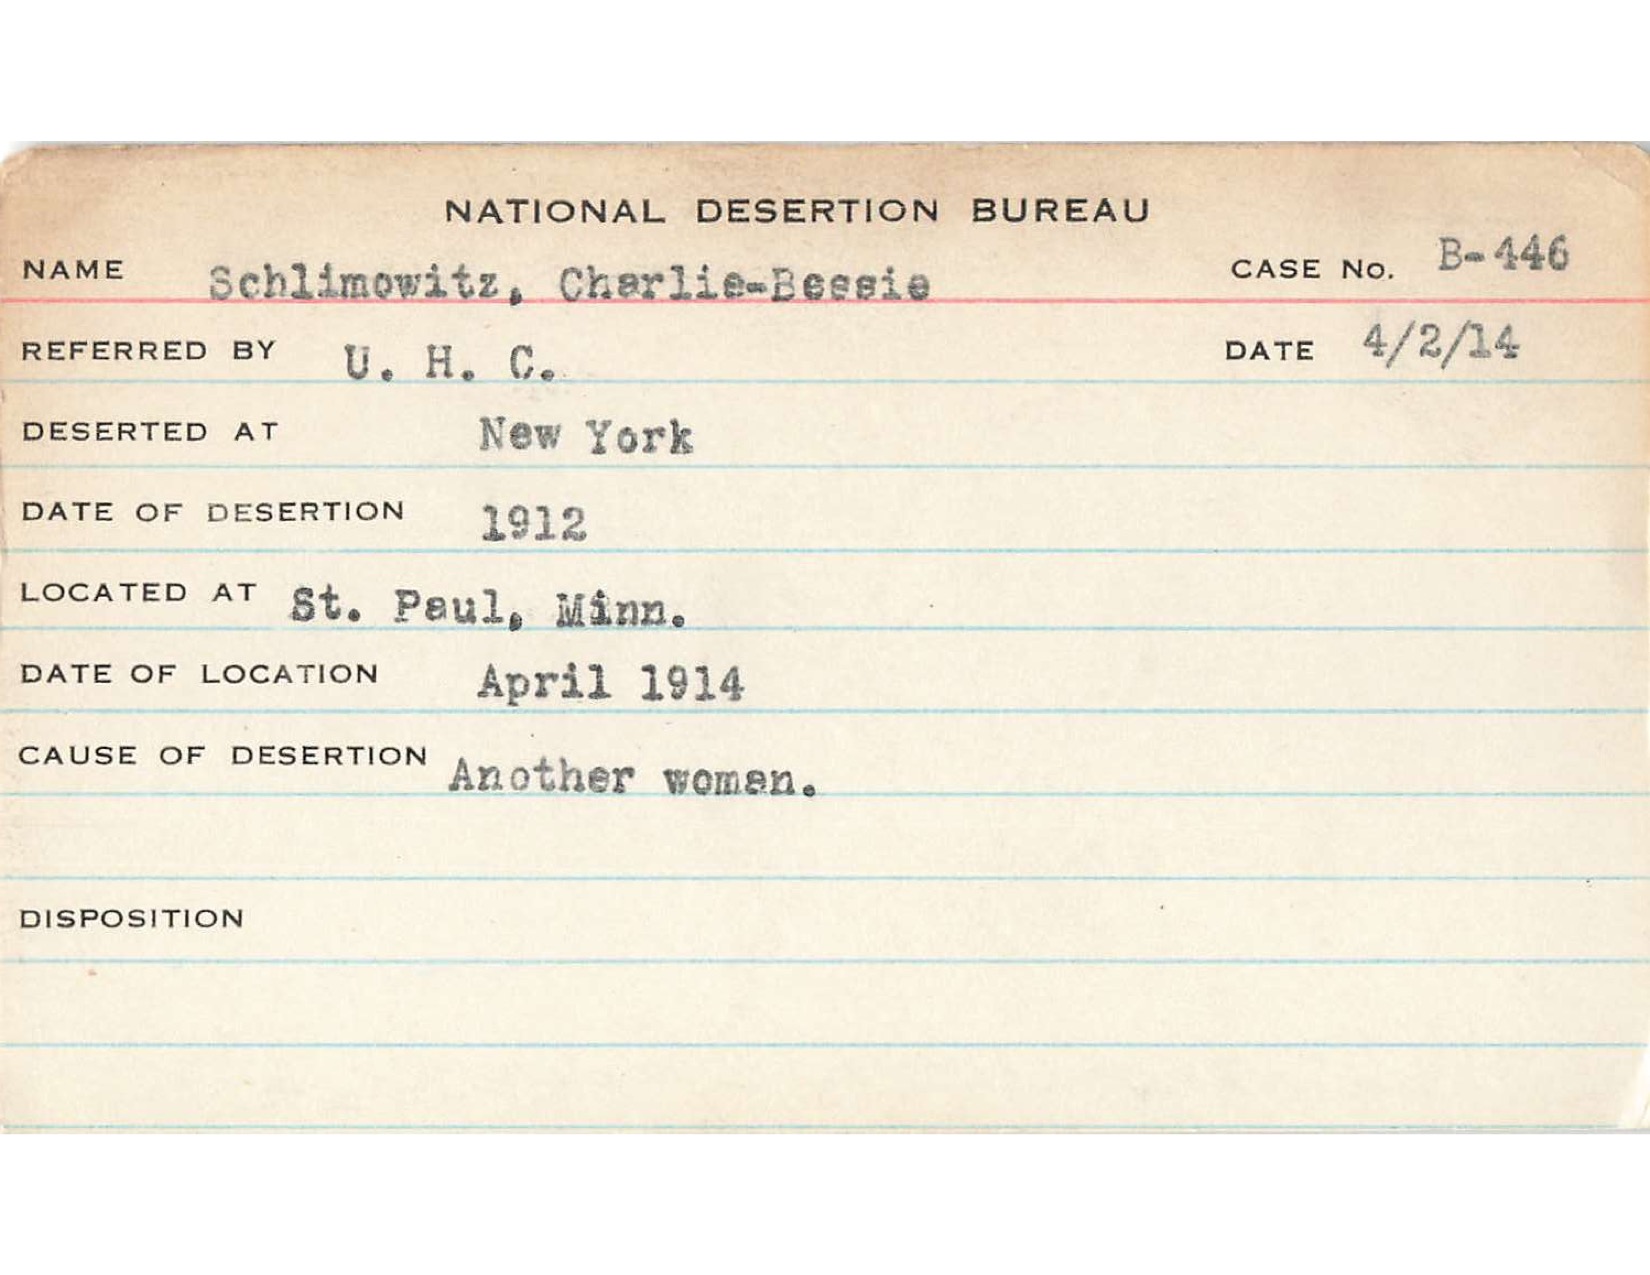 NATIONAL DESERTION BUREAU
NAME Schlimowitz, Charlie-Bessie CASE No. B-446
REFERRED BY U. H. C. DATE 4/2/14
DESERTED AT New York
DATE OF DESERTION 1912
LOCATED AT St. Paul, Minn.
DATE OF LOCATION April 1914
CAUSE OF DESERTION Another woman.
DISPOSITION